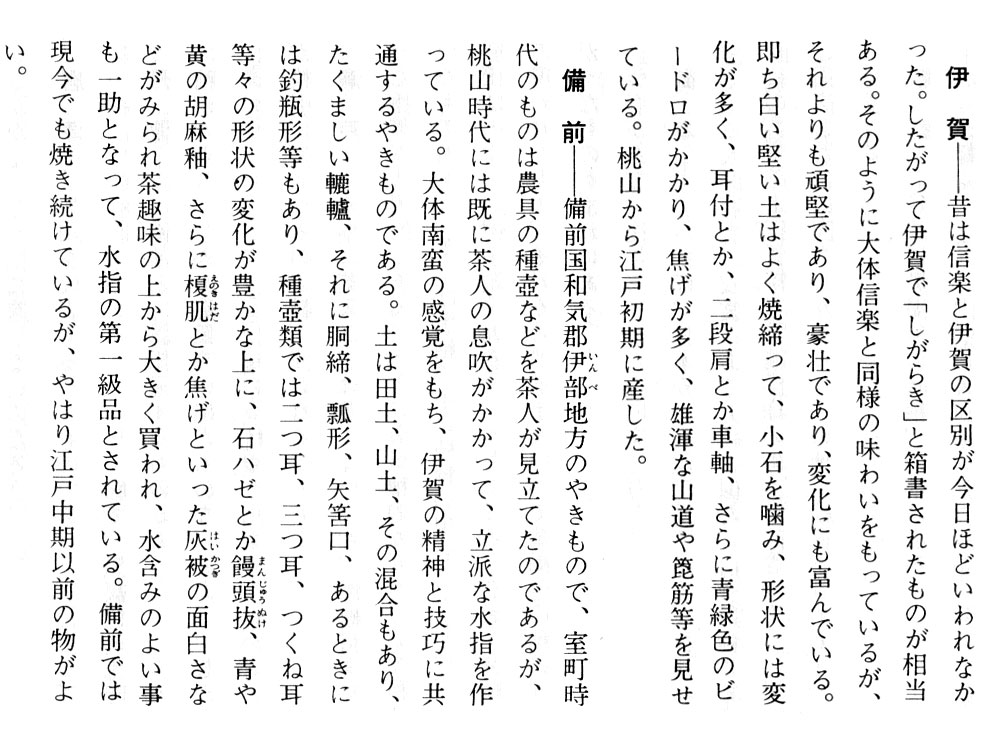 伊 賀――昔は信楽と伊賀の区別が今日ほどいわれなか
った。したがって伊賀で「しがらき」と箱書されたものが相当
ある。そのように大体信楽と同様の味わいをもっているが、
それよりも頑堅であり、豪壮であり、変化にも富んでいる。
即ち白い堅い土はよく焼締って、小石を噛み、形状には変
化が多く、耳付とか、二段肩とか車軸、さらに青緑色のビ
ードロがかかり、焦げが多く、雄渾な山道や箆筋等を見せ
ている。桃山から江戸初期に産した。
備 前――備前国和気郡伊部地方のやきもので、室町時
代のものは農具の種壺などを茶人が見立てたのであるが、
桃山時代には既に茶人の息吹がかかって、立派な水指を作
っている。大体南蛮の感覚をもち、伊賀の精神と技巧に共
通するやきものである。土は田土、山土、その混合もあり、
たくましい轆轤、それに胴締、瓢形、矢筈口、あるときに
は釣瓶形等もあり、種壺類では二つ耳、三つ耳、つくね耳
等々の形状の変化が豊かな上に、石ハゼとか饅頭抜、青や
黄の胡麻釉、さらに榎肌とか焦げといった灰被の面白さな
どがみられ茶趣味の上から大きく買われ、水含みのよい事
も一助となって、水指の第一級品とされている。備前では
現今でも焼き続けているが、やはり江戸中期以前の物がよ
い。